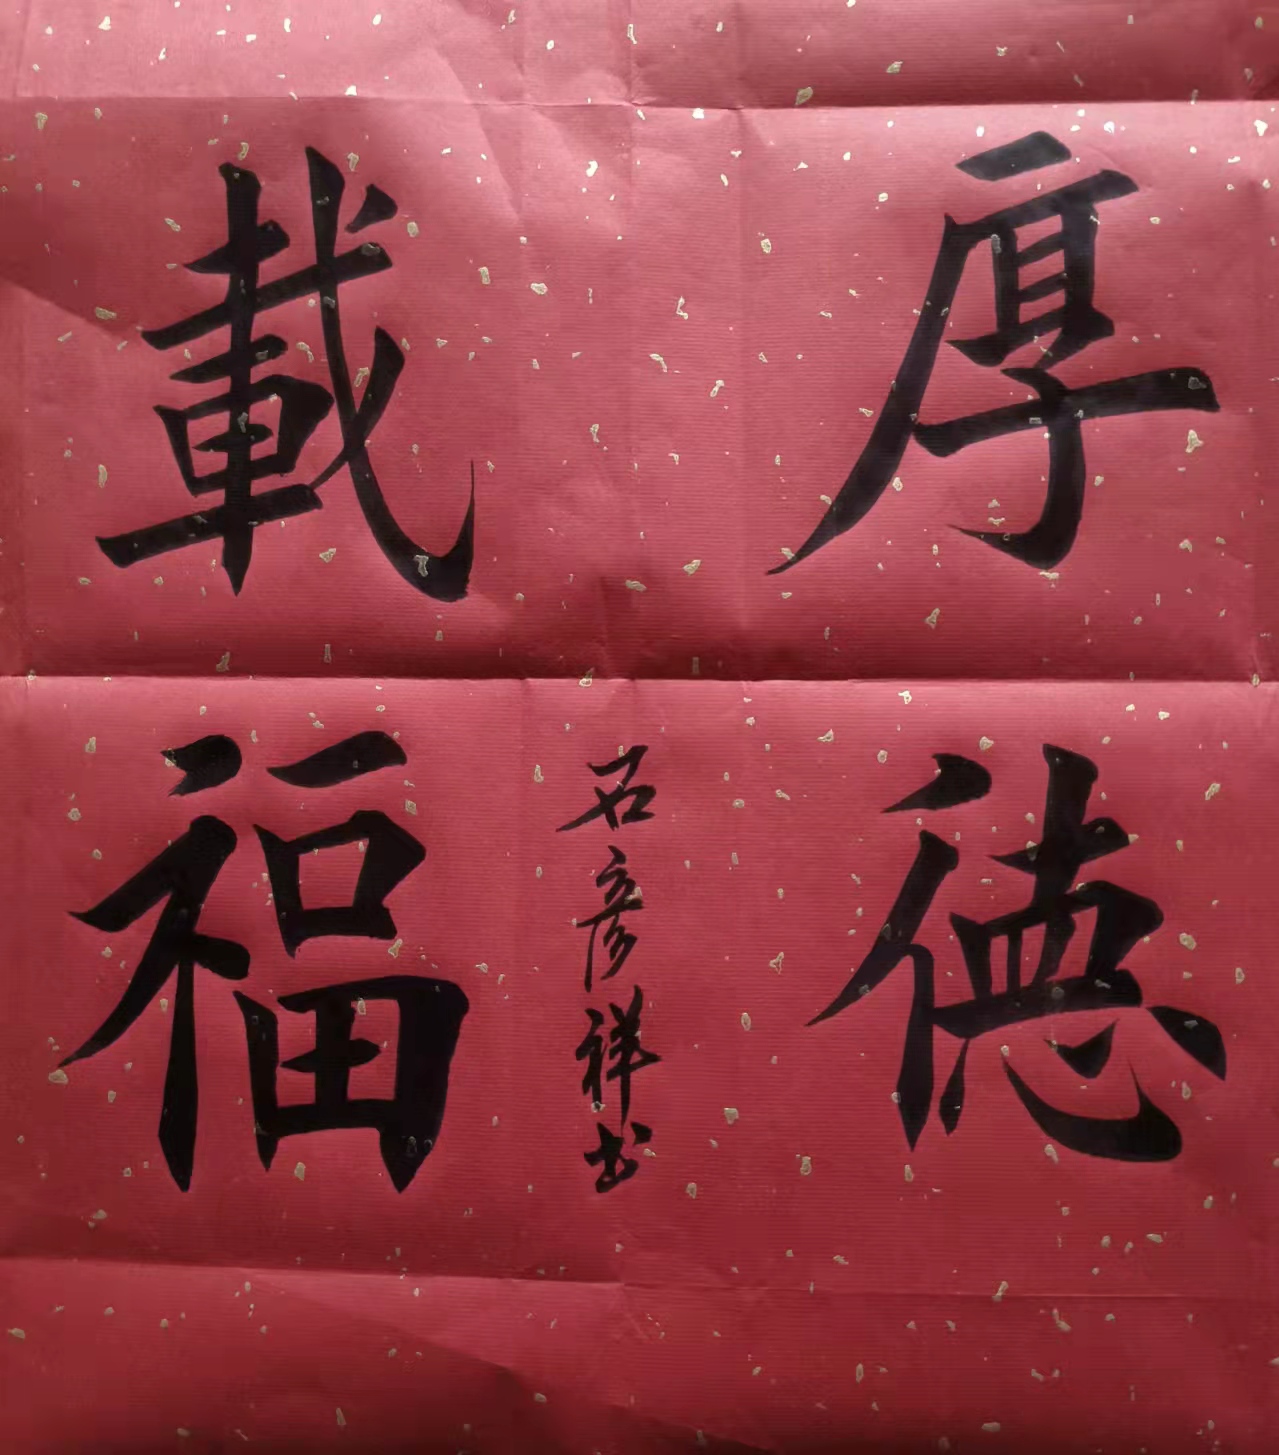 厚德
載福
石彦祥书